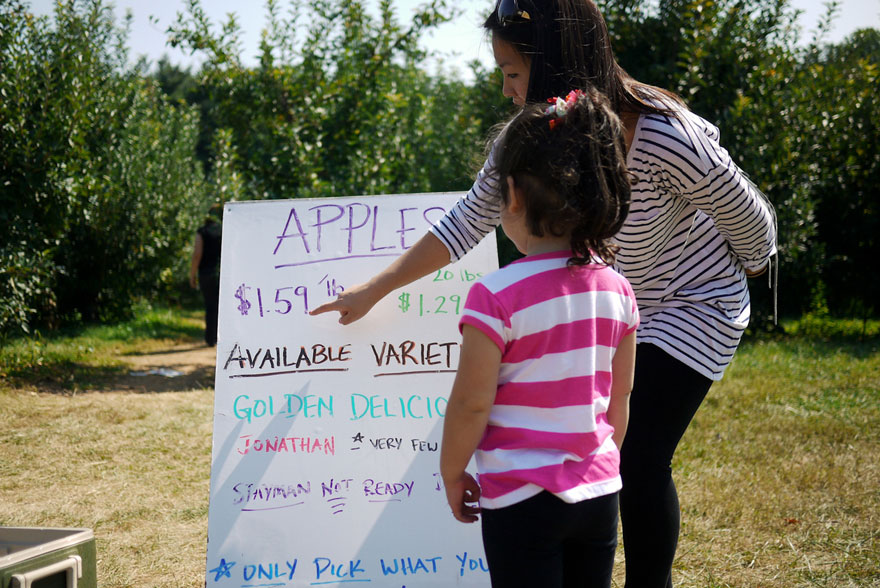 APPLES
20 lbs
$1.59 lb $1.29
AVAILABLE VARIET
GOLDEN DELICIO
JONATHAN * VERY FEW
STAYMAN NOT READY
* ONLY PICK WHAT YOU